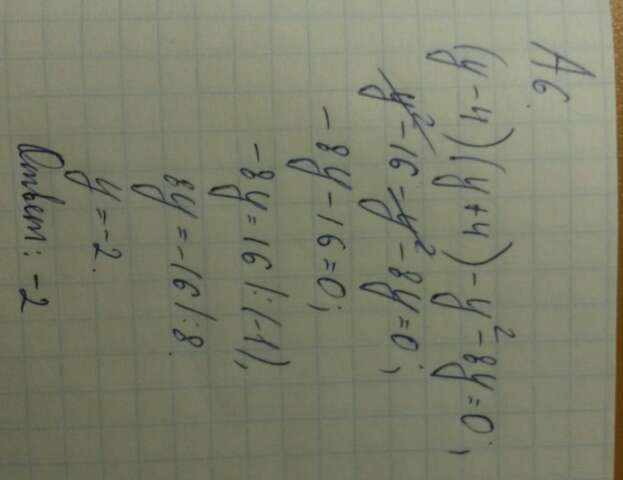 А6.
(y-4)(y+4)-y²-8y=0;
y²-16-y²-8y=0;
-8y-16=0;
-8y=16 |:(-1);
8y=-16 |:8.
y=-2.
Ответ: -2